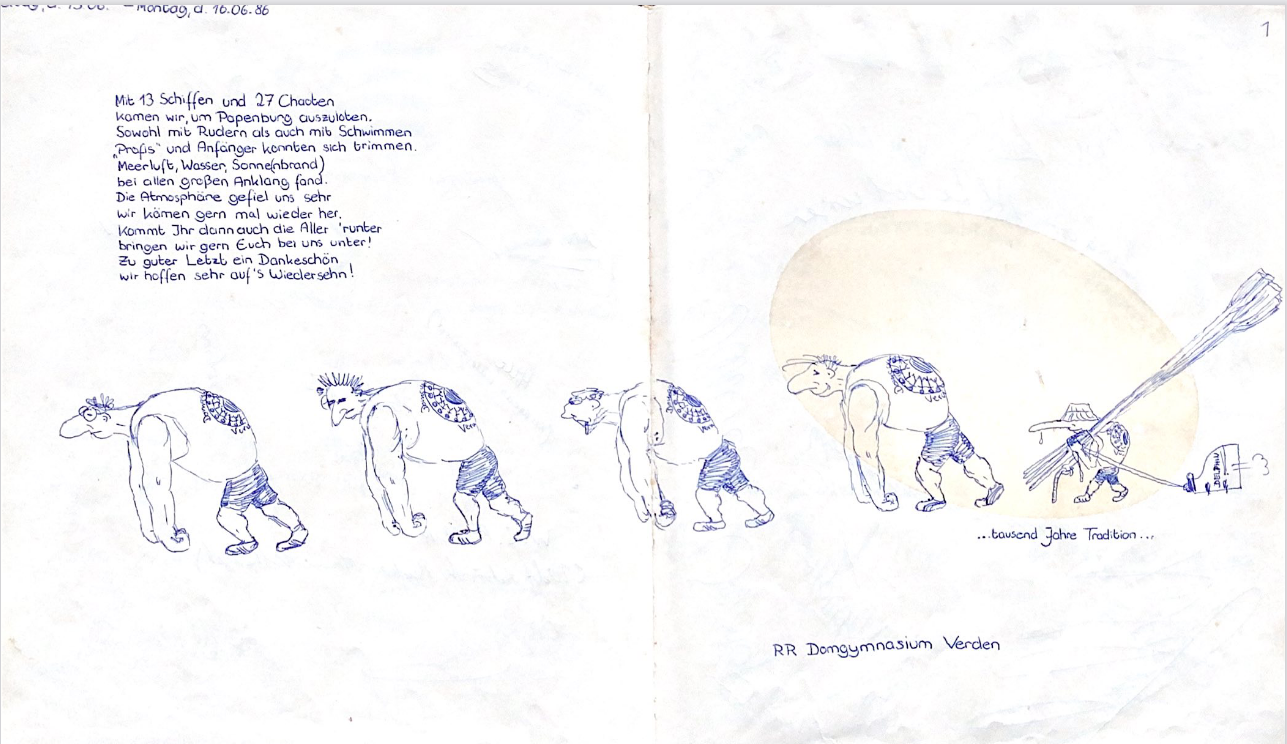 – Montag, d. 16.06.86
1
Mit 13 Schiffen und 27 Chaoten
kamen wir, um Papenburg auszuloten.
Sowohl mit Rudern als auch mit Schwimmen
„Profis“ und Anfänger konnten sich trimmen.
Meerluft, Wasser, Sonne(nbrand)
bei allen großen Anklang fand.
Die Atmosphäre gefiel uns sehr
wir kämen gern mal wieder her.
Kommt Ihr dann auch die Aller 'runter
bringen wir gern Euch bei uns unter!
Zu guter Letzt ein Dankeschön
wir hoffen sehr auf's Wiedersehn!
...tausend Jahre Tradition...
RR Domgymnasium Verden